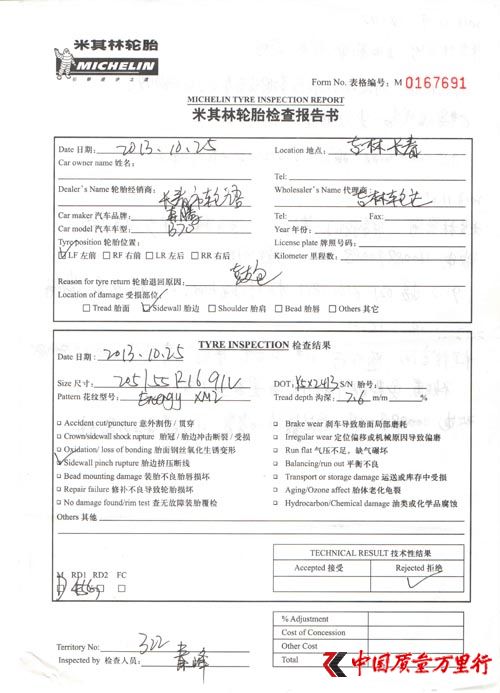 米其林轮胎
MICHELIN
Form No. 表格编号: M 0167691
MICHELIN TYRE INSPECTION REPORT
米其林轮胎检查报告书
Date 日期: 2013.10.25 Location 地点: 吉林长春
Car owner name 姓名:
Tel:
Dealer's Name 轮胎经销商: 长春市车轮 Wholesaler's Name 代理商: 吉林
Car maker 汽车品牌: 奔腾 Tel: Fax:
Car model 汽车车型: B70 Year 年份:
Tyre position 轮胎位置: License plate 牌照号码:
LF 左前 RF 右前 LR 左后 RR 右后 Kilometer 里程数:
Reason for tyre return 轮胎退回原因: 鼓包
Location of damage 受损部位
Tread 胎面 Sidewall 胎边 Shoulder 胎肩 Bead 胎唇 Others 其它
TYRE INSPECTION 检查结果
Date 日期: 2013.10.25
Size 尺寸: 205/55R16 91V DOT: X5X2413 S/N 胎号:
Pattern 花纹型号: Energy XM2 Tread depth 沟深: 7.6 m/m %
Accident cut/puncture 意外割伤 / 贯穿 Brake wear 刹车导致胎面局部磨耗
Crown/sidewall shock rupture 胎冠 / 胎边冲击断裂 / 受损 Irregular wear 定位偏移或机械原因导致偏磨
Oxidation/ loss of bonding 胎面钢丝氧化生锈变形 Run flat 气压不足、缺气碾坏
Sidewall pinch rupture 胎边挤压断线 Balancing/run out 平衡不良
Bead mounting damage 装胎不良胎唇损坏 Transport or storage damage 运送或库存中受损
Repair failure 修补不良导致轮胎损坏 Aging/Ozone affect 胎体老化龟裂
No damage found/rim test 查无故障装胎覆检 Hydrocarbon/Chemical damage 油类或化学品腐蚀
Others 其他
TECHNICAL RESULT 技术性结果
Accepted 接受 Rejected 拒绝
M RD1 RD2 FC
% Adjustment
Cost of Concession
Territory No: 322 Other Cost
Inspected by 检查人员: Total
中国质量万里行